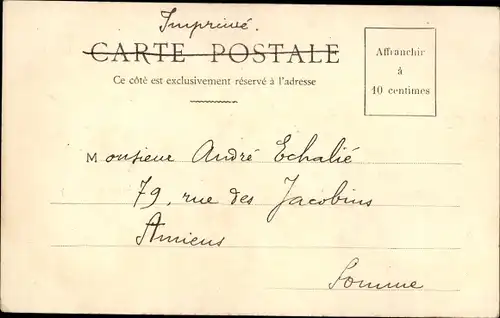 Imprimé.
CARTE POSTALE
Ce côté est exclusivement réservé à l'adresse
Affranchir
à
10 centimes
Monsieur André Echalié
79, rue des Jacobins
Amiens
Somme